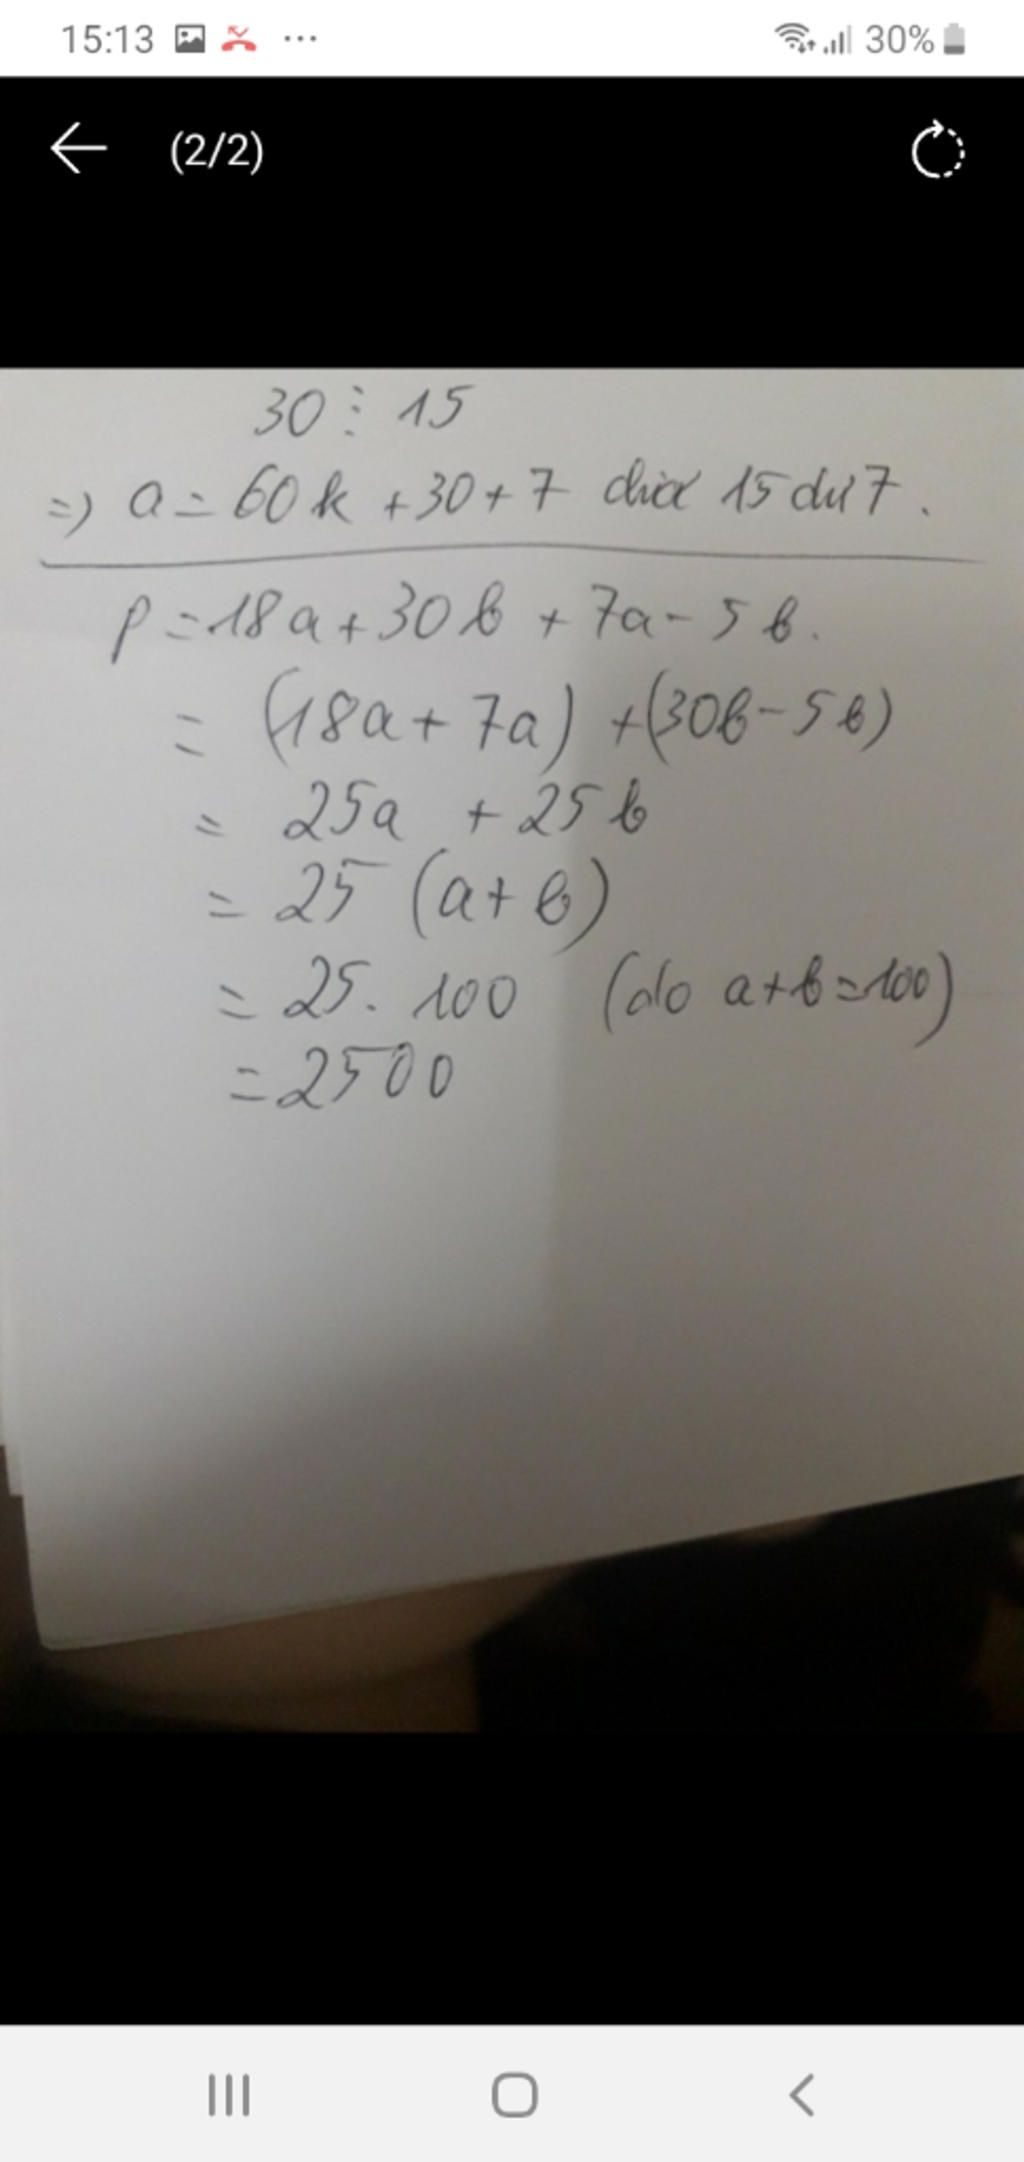 15:13 ... 30%
(2/2)
30 ⋮ 15
=) a = 60k + 30 + 7 chia 15 dư 7.
P = 18a + 30b + 7a - 5b.
= (18a + 7a) + (30b - 5b)
= 25a + 25b
= 25 (a + b)
= 25. 100 (do a+b=100)
= 2500